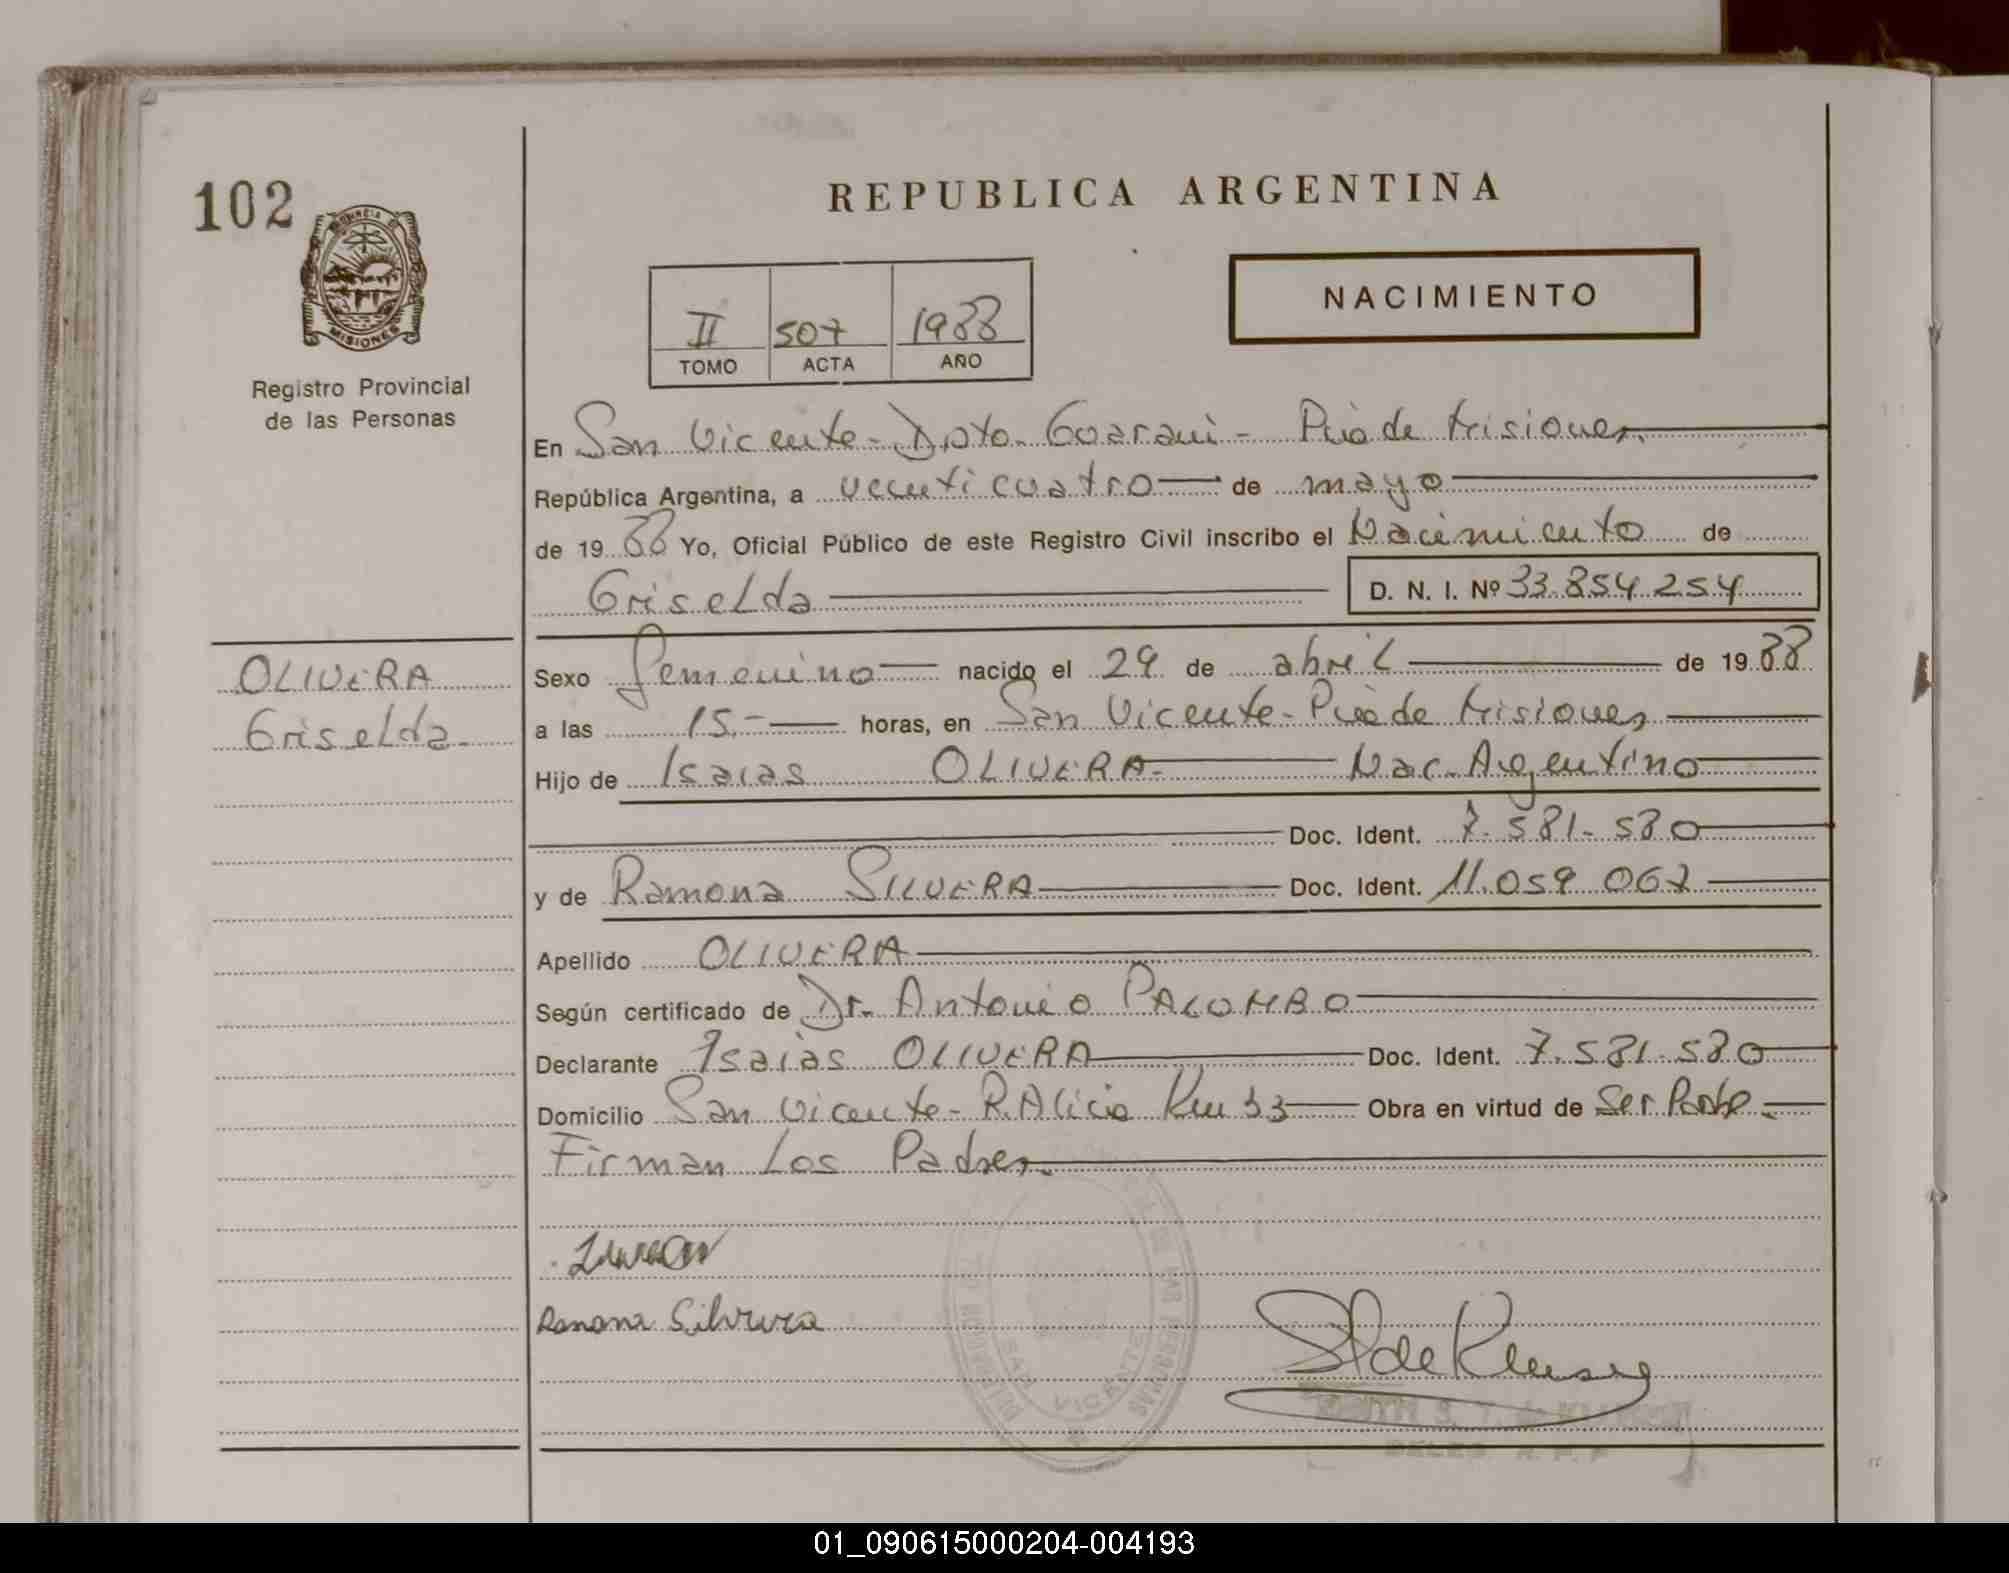 102
PROVINCIA DE
MISIONES
Registro Provincial
de las Personas
REPUBLICA ARGENTINA
II 507 1988
TOMO ACTA AÑO
NACIMIENTO
En San Vicente - Dpto. Guarani - Pcia de Misiones.
República Argentina, a veinticuatro de mayo
de 19 88 Yo, Oficial Público de este Registro Civil inscribo el Nacimiento de
Griselda D. N. I. Nº 33.854 254
OLIVERA
Griselda
Sexo Femenino nacido el 29 de abril de 19 88
a las 15.- horas, en San Vicente - Pcia de Misiones
Hijo de Isaias OLIVERA.- Nac. Argentino
Doc. Ident. 7.581.580
y de Ramona SILVERA Doc. Ident. 11.059 067
Apellido OLIVERA
Según certificado de Dr. Antonio PALOMBO
Declarante Isaias OLIVERA Doc. Ident. 7.581.580
Domicilio San Vicente - R. Alicia Km 33 Obra en virtud de Ser Padre.-
Firman Los Padres.
Ramona Silvera
SAN VICENTE
01_090615000204-004193